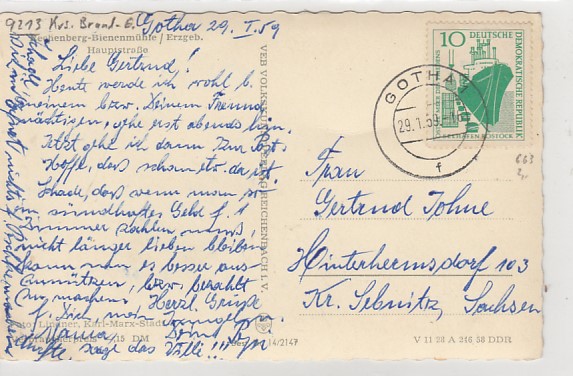 9213 Krs. Brand-E.
Rechenberg-Bienenmühle / Erzgeb.
Hauptstraße
Gotha 29. I. 59
Liebe Gertrud!
Heute werde ich wohl b.
meinem bzw. Deinem Freund
nächtigen, gehe erst abends hin.
Jetzt gehe ich dann zur Post.
Hoffe, dass schon etw. da ist.
Schade, dass wenn man so
sündhaftes Geld f. 1
Zimmer zahlen muss,
nicht länger liegen bleiben
kann um es besser aus-
zunützen, bzw. bezahlt
zu machen. Herzl. Grüße
f. Dich, mein
Mama,
sage das
VEB VOLKSKUNST
REICHENBACH I. V.
Foto: Lindner, Karl-Marx-Stadt
15 DM
14/2147
10 DEUTSCHE
DEMOKRATISCHE REPUBLIK
ROSTOCK
GOTHA
29.1.59
f
663
Frau
Gertrud Johne
Hinterhermsdorf 103
Kr. Sebnitz, Sachsen
V 11 28 A 246 58 DDR